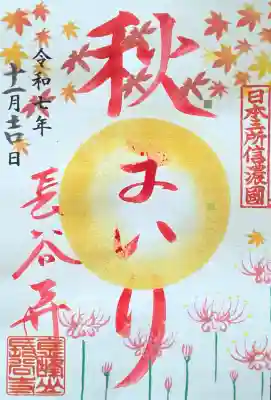 日本三所信濃國
秋まいり
令和七年
十一月吉日
長谷寺
金峯山
長谷寺